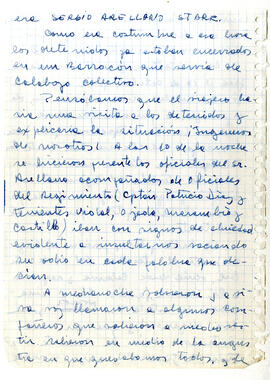 era SERGIO ARELLANO STARK.
Como era costumbre a esa hora
los detenidos ya estaban encerrados
en un barracón que servía de
calabozo colectivo.
Pensábamos que el viajero ha-
ría una visita a los detenidos y
explicaría la situación ¡Ingenuos
de nosotros! A las 10 de la noche
se hicieron presente los oficiales del Sr.
Arellano acompañados de Oficiales
del Regimiento (Cptán Patricio Díaz y
tenientes Vidal, Ojeda, Marambio y
Castillo) iban con signos de ebriedad
evidente a insultarnos vaciando
su odio en cada palabra que de-
cían.
A medianoche volvieron y a
su vez llamaron a algunos com-
pañeros que salieron a medio ves-
tir salieron en medio de la angus-
tia en que quedábamos todos, y de